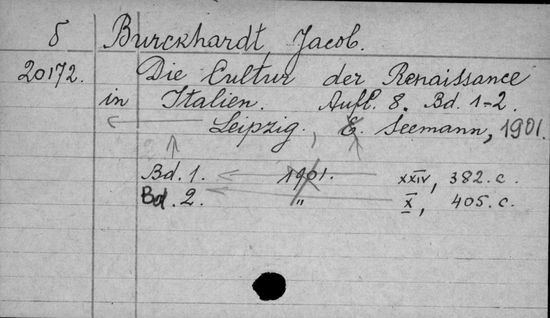 5 Burckhardt, Jacob.
20172. Die Cultur der Renaissance
in Italien. Aufl. 8. Bd. 1-2.
Leipzig., E. Seemann, 1901.
Bd. 1. 1901. XXIV, 382. c.
Bd. 2. " X, 405. c.